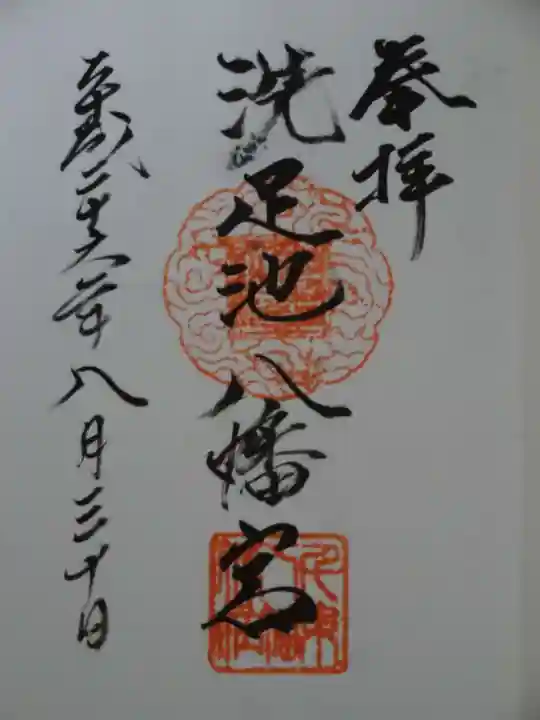 奉拝
洗足池八幡宮
平成二十六年八月三十日